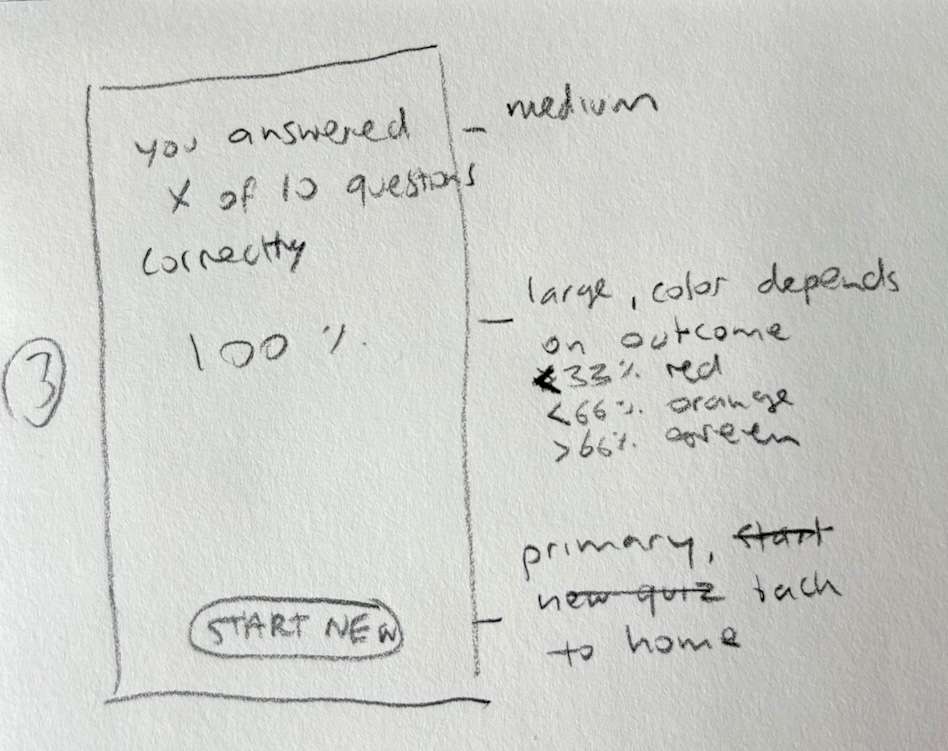 you answered
X of 10 questions
correctly
100 %
START NEW
3
medium
large, color depends
on outcome
<33% red
<66% orange
>66% green
primary, start
new quiz back
to home